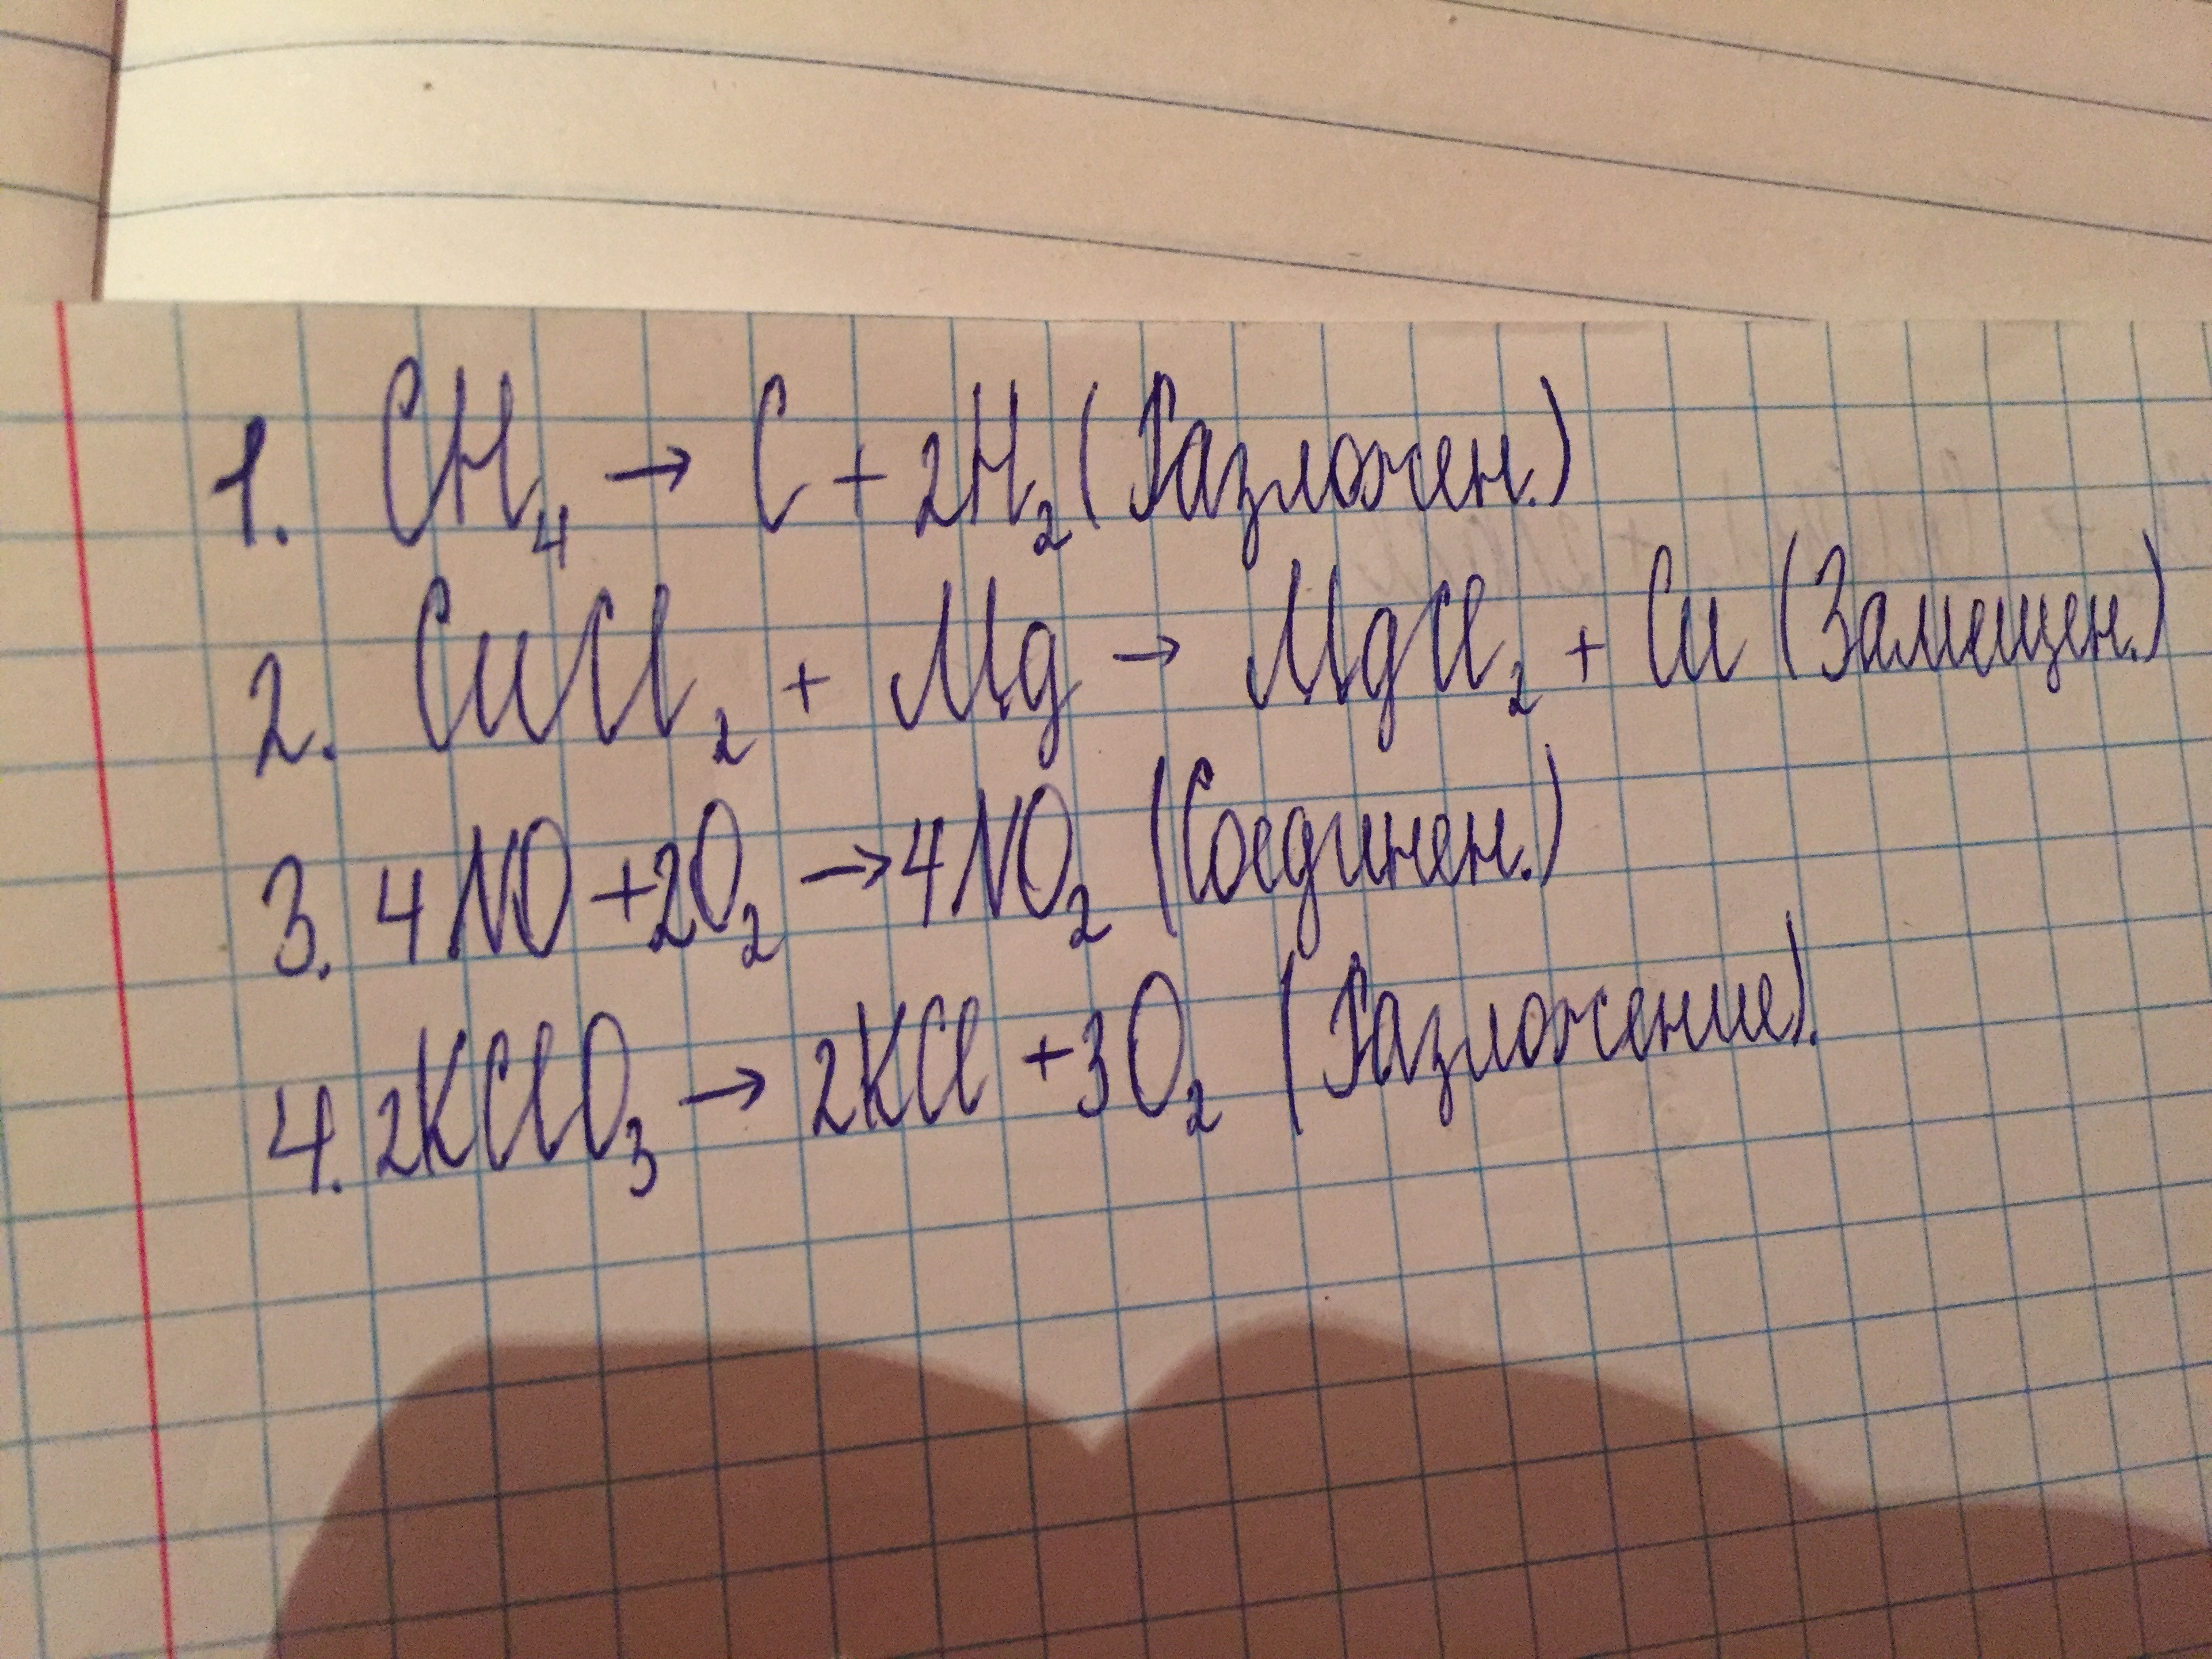 1. CH₄ → C + 2H₂ (Разложен.)
2. CuCl₂ + Mg → MgCl₂ + Cu (Замещен.)
3. 4NO + 2O₂ → 4NO₂ (Соединен.)
4. 2KClO₃ → 2KCl + 3O₂ (Разложение).